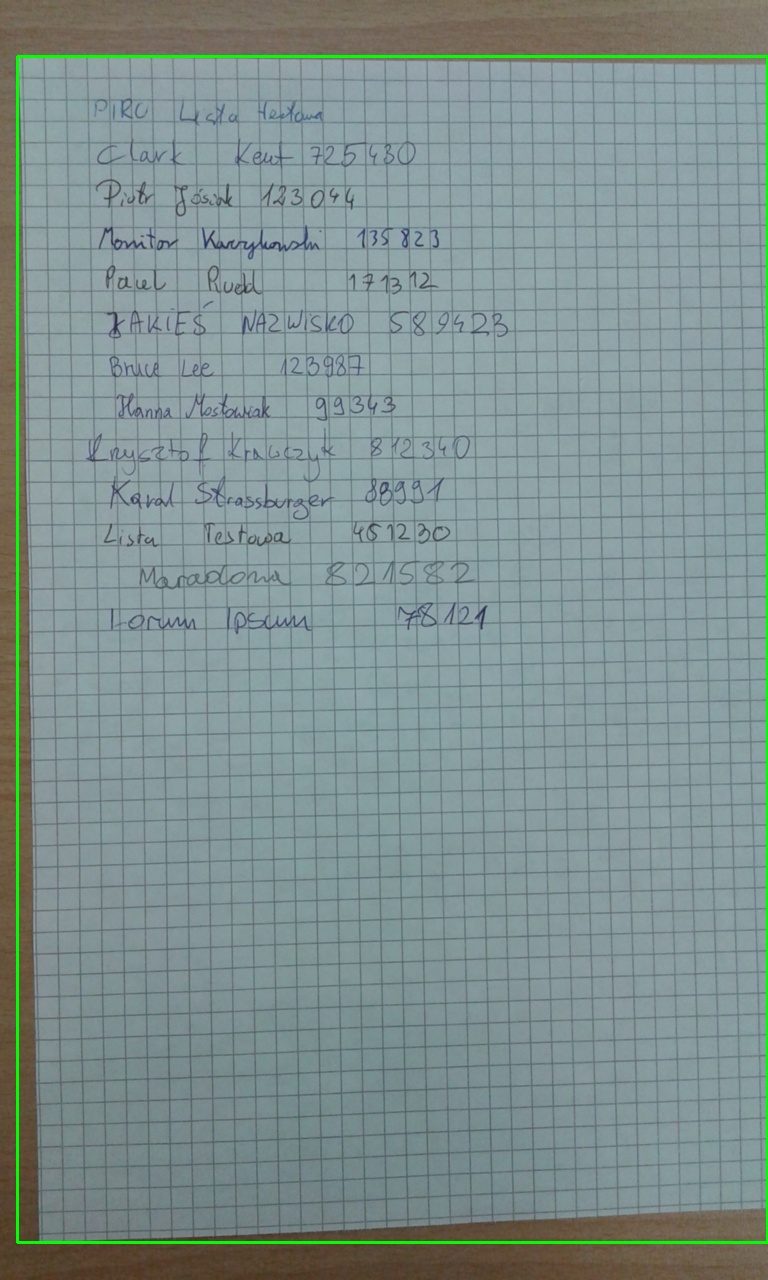 PIRO Lista testowa
Clark Kent 725430
Piotr Jósiak 123044
Monitor 135823
Paweł Rudd 171312
JAKIEŚ NAZWISKO 589423
Bruce Lee 123987
Hanna Mostowiak 99343
Krysztof Krawczyk 812340
Karol Strassburger 88991
Lista Testowa 451230
Maradona 821582
Lorum Ipsum 78121